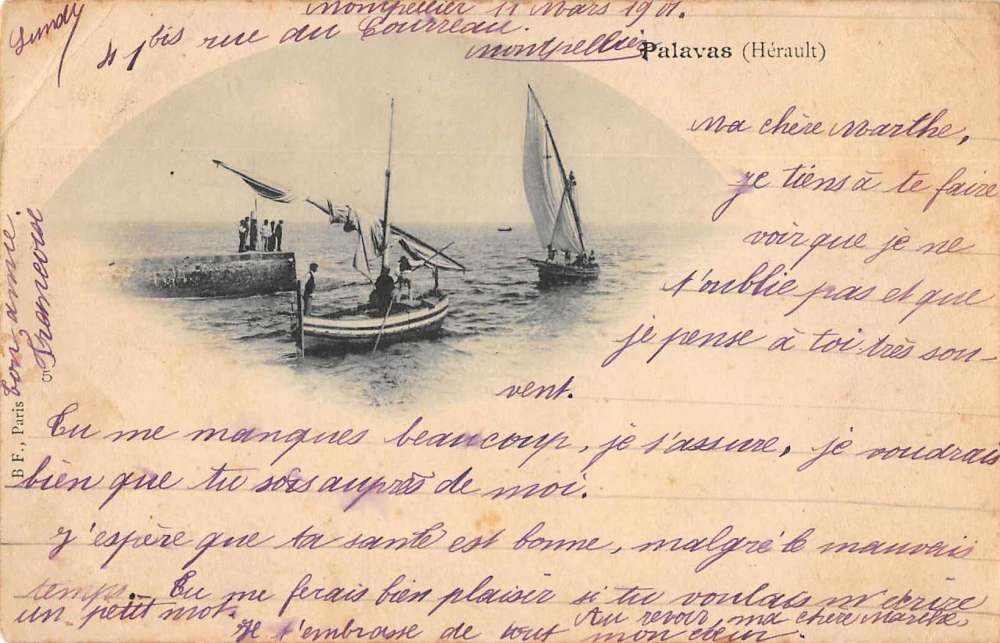 Lundy
Montpellier 11 Mars 1901.
41 bis rue du Courreau.
Montpellier
Palavas (Hérault)
Ma chère Marthe,
je tiens à te faire
voir que je ne
t'oublie pas et que
je pense à toi très sou-
vent.
Tu me manques beaucoup, je t'assure, je voudrais
bien que tu sois auprès de moi.
J'espère que ta santé est bonne, malgré le mauvais
temps. Tu me ferais bien plaisir si tu voulais m'écrire
un petit mot.
Au revoir, ma chère Marthe,
Je t'embrasse de tout mon cœur.
Ton amie
B F., Paris